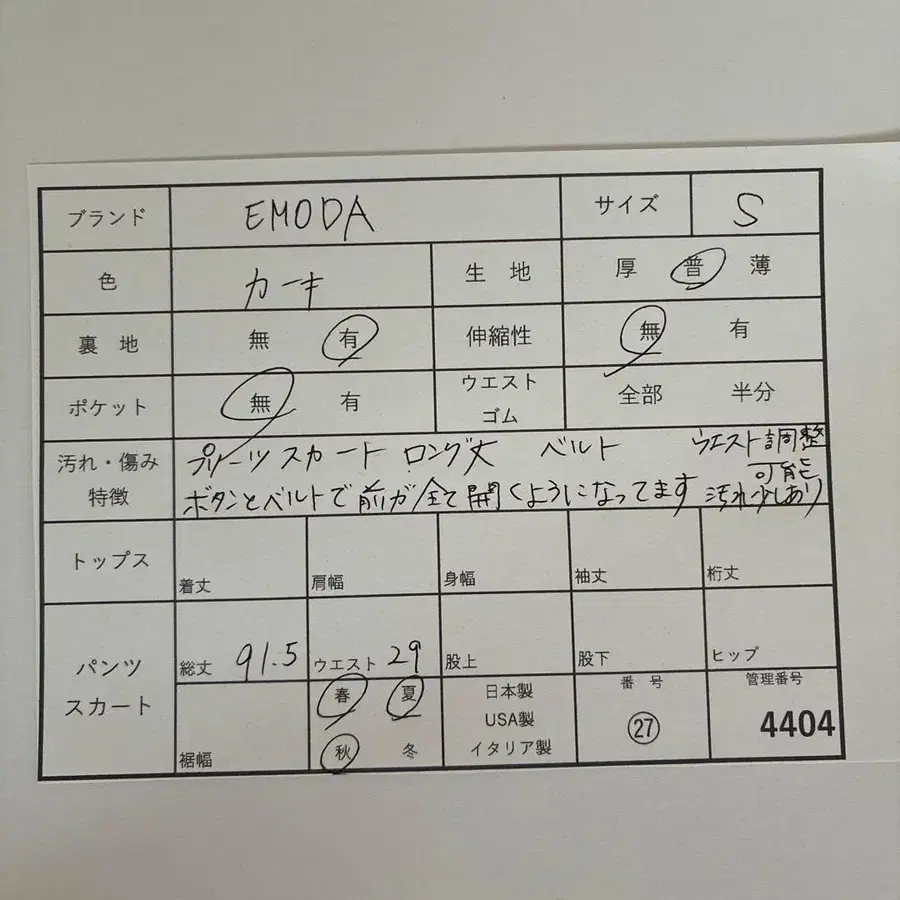 ブランド EMODA サイズ S
色 カーキ 生地 厚 普 薄
裏地 無 有 伸縮性 無 有
ポケット 無 有 ウエストゴム 全部 半分
汚れ・傷み
特徴
プリーツスカート ロング丈 ベルト ウエスト調整
可能
ボタンとベルトで前が全て開くようになってます 汚れ少しあり
トップス 着丈 肩幅 身幅 袖丈 裄丈
パンツ
スカート
総丈 91.5 ウエスト 29 股上 股下 ヒップ
裾幅
春 夏
秋 冬
日本製
USA製
イタリア製
番号
27
管理番号
4404